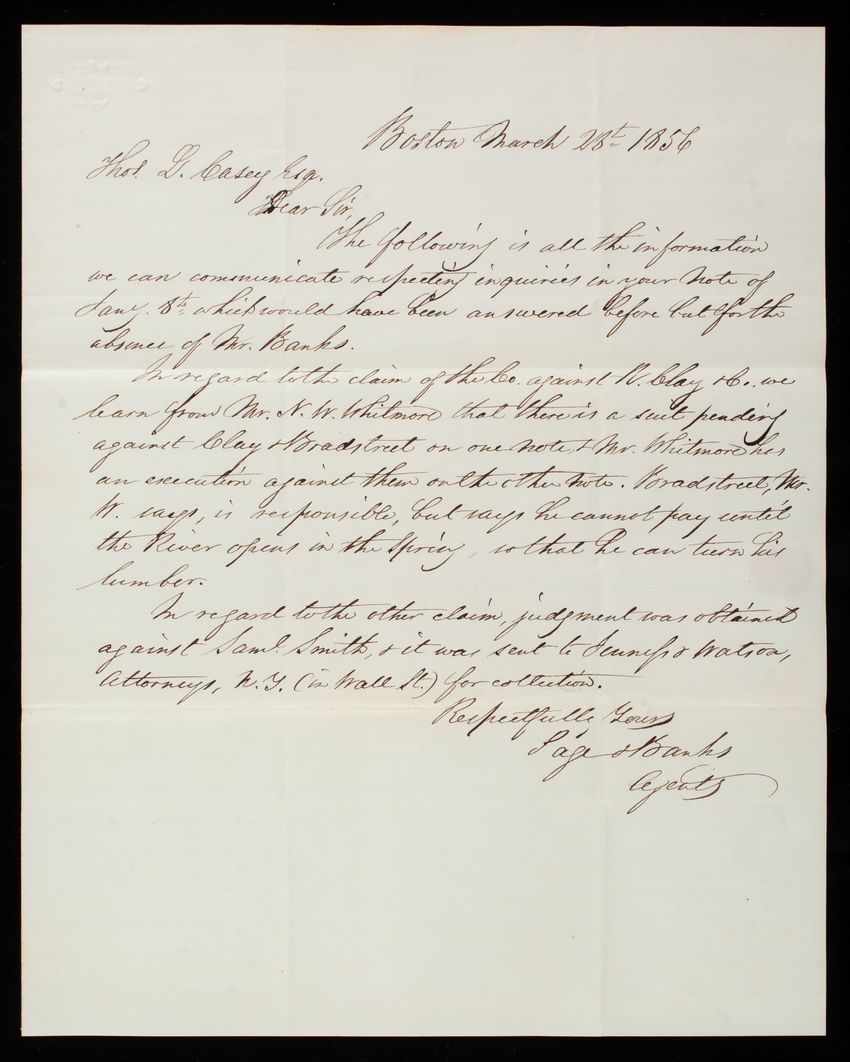 Boston March 28th 1856
Thos. D. Casey Esq.
Dear Sir,
The following is all the information
we can communicate respecting inquiries in your note of
Jany. 8th which would have been answered before but for the
absence of Mr. Banks.
In regard to the claim of the Co. against W. Clay & Co. we
learn from Mr. N. W. Whitmore that there is a suit pending
against Clay & Bradstreet on one note, & Mr. Whitmore has
an execution against them on the other note. Bradstreet, Mr.
W. says, is responsible, but says he cannot pay until
the River opens in the Spring, so that he can turn his
lumber.
In regard to the other claim, judgment was obtained
against Saml. Smith, & it was sent to Jenness & Watson,
Attorneys, N.Y. (in Wall St.) for collection.
Respectfully Yours
Page & Banks
Agents